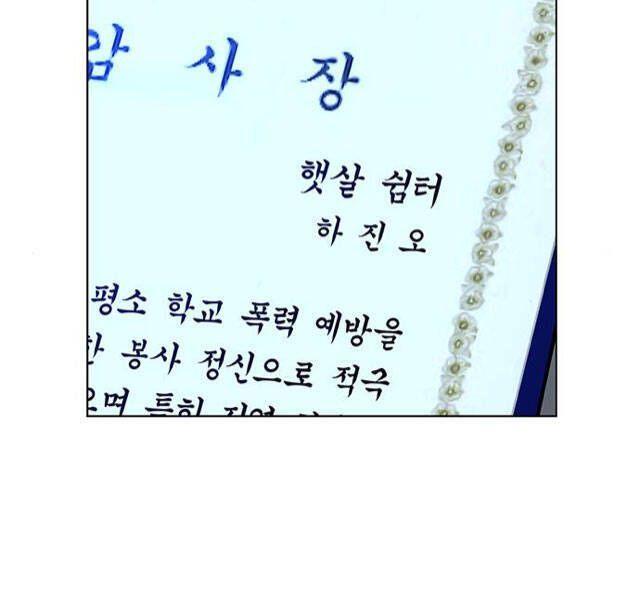 사 장
햇살 쉼터
하 진 오
평소 학교 폭력 예방을
한 봉사 정신으로 적극
으며 특히 지역